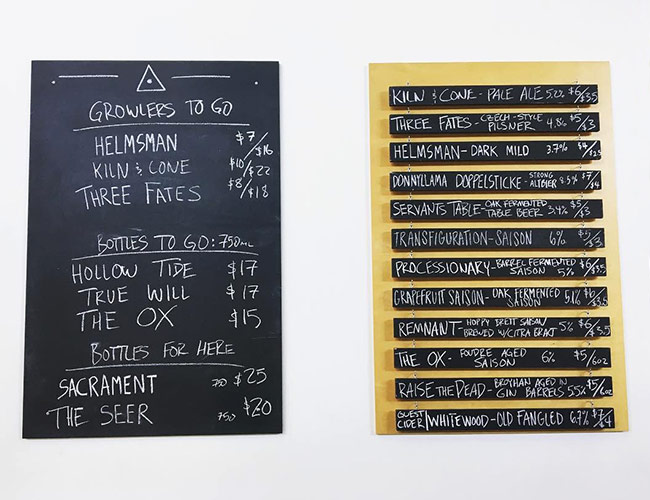 GROWLERS TO GO
HELMSMAN $7/$16
KILN & CONE $10/$22
THREE FATES $8/$18
BOTTLES TO GO: 750ML
HOLLOW TIDE $17
TRUE WILL $17
THE OX $15
BOTTLES FOR HERE
SACRAMENT 750 $25
THE SEER 750 $20
KILN & CONE - PALE ALE 5.2% $6/$3.5
THREE FATES - CZECH-STYLE PILSNER 4.8% $5/$3
HELMSMAN - DARK MILD 3.7% $4/$2.5
DONNYLLAMA DOPPELSTICKE - STRONG ALTBIER 8.5% $7/$4
SERVANTS TABLE - OAK FERMENTED TABLE BEER 3.4% $5/$3
TRANSFIGURATION - SAISON 6% $5/$3
PROCESSIONARY - BARREL FERMENTED SAISON 5% $6/$3.5
GRAPEFRUIT SAISON - OAK FERMENTED SAISON 5.1% $6/$3.5
REMNANT - HOPPY BRETT SAISON/ BREWED W/CITRA 5% $6/$3.5
THE OX - FOUDRE AGED SAISON 6% $5/6oz
RAISE THE DEAD - BROYHAN AGED IN GIN BARRELS 5.5% $5/6oz
GUEST CIDER | WHITEWOOD - OLD FANGLED 6.7% $7/$4